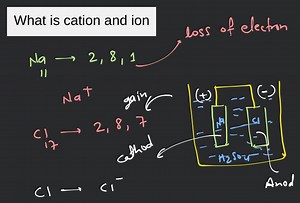 What is cation and ion
Na → 2, 8, 1
11
loss of electron
Na+
gain
Cl → 2, 8, 7
17
cathod
Cl → Cl-
(+) (-)
Na Cl
H2SO4
Anod